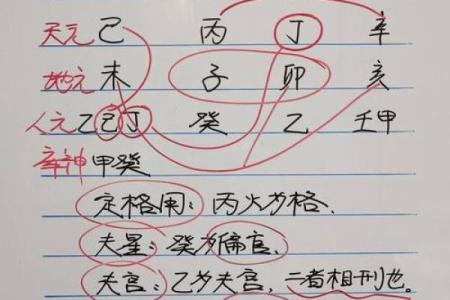 天元 己 丙 丁 辛
地元 未 子 卯 亥
人元 乙己丁 癸 乙 壬甲
宰神 甲癸
定格用：丙火为格、
夫星：癸为偏官、
夫宫：乙为夫宫、二者相刑也。